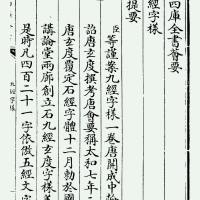 四庫全書薈要
經字樣
提要
臣等謹案九經字樣一卷唐開成中
詔唐玄度撰考唐會要稱太和七年二
唐玄度覆定石經字體十二月勅於國
講論堂兩廊創立石九經玄度字樣蓋
是時四百二十一字依倣五經文字
九經字樣